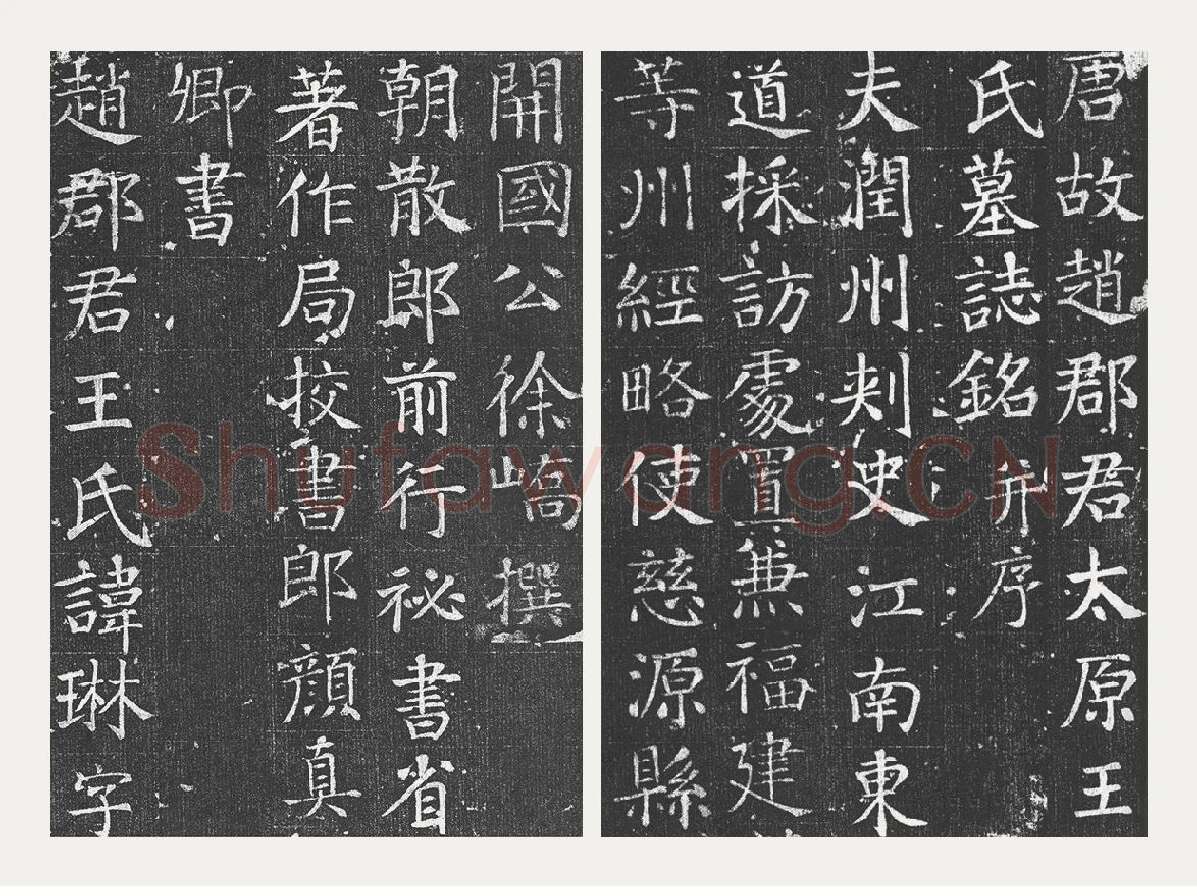 唐故趙郡君太原王
氏墓誌銘并序
夫潤州刾史江南東
道採訪處置兼福建
等州經略使慈源縣
開國公徐嶠撰
朝散郎前行祕書省
著作局挍書郎顏真
卿書
趙郡君王氏諱琳字
Shufawang.CN